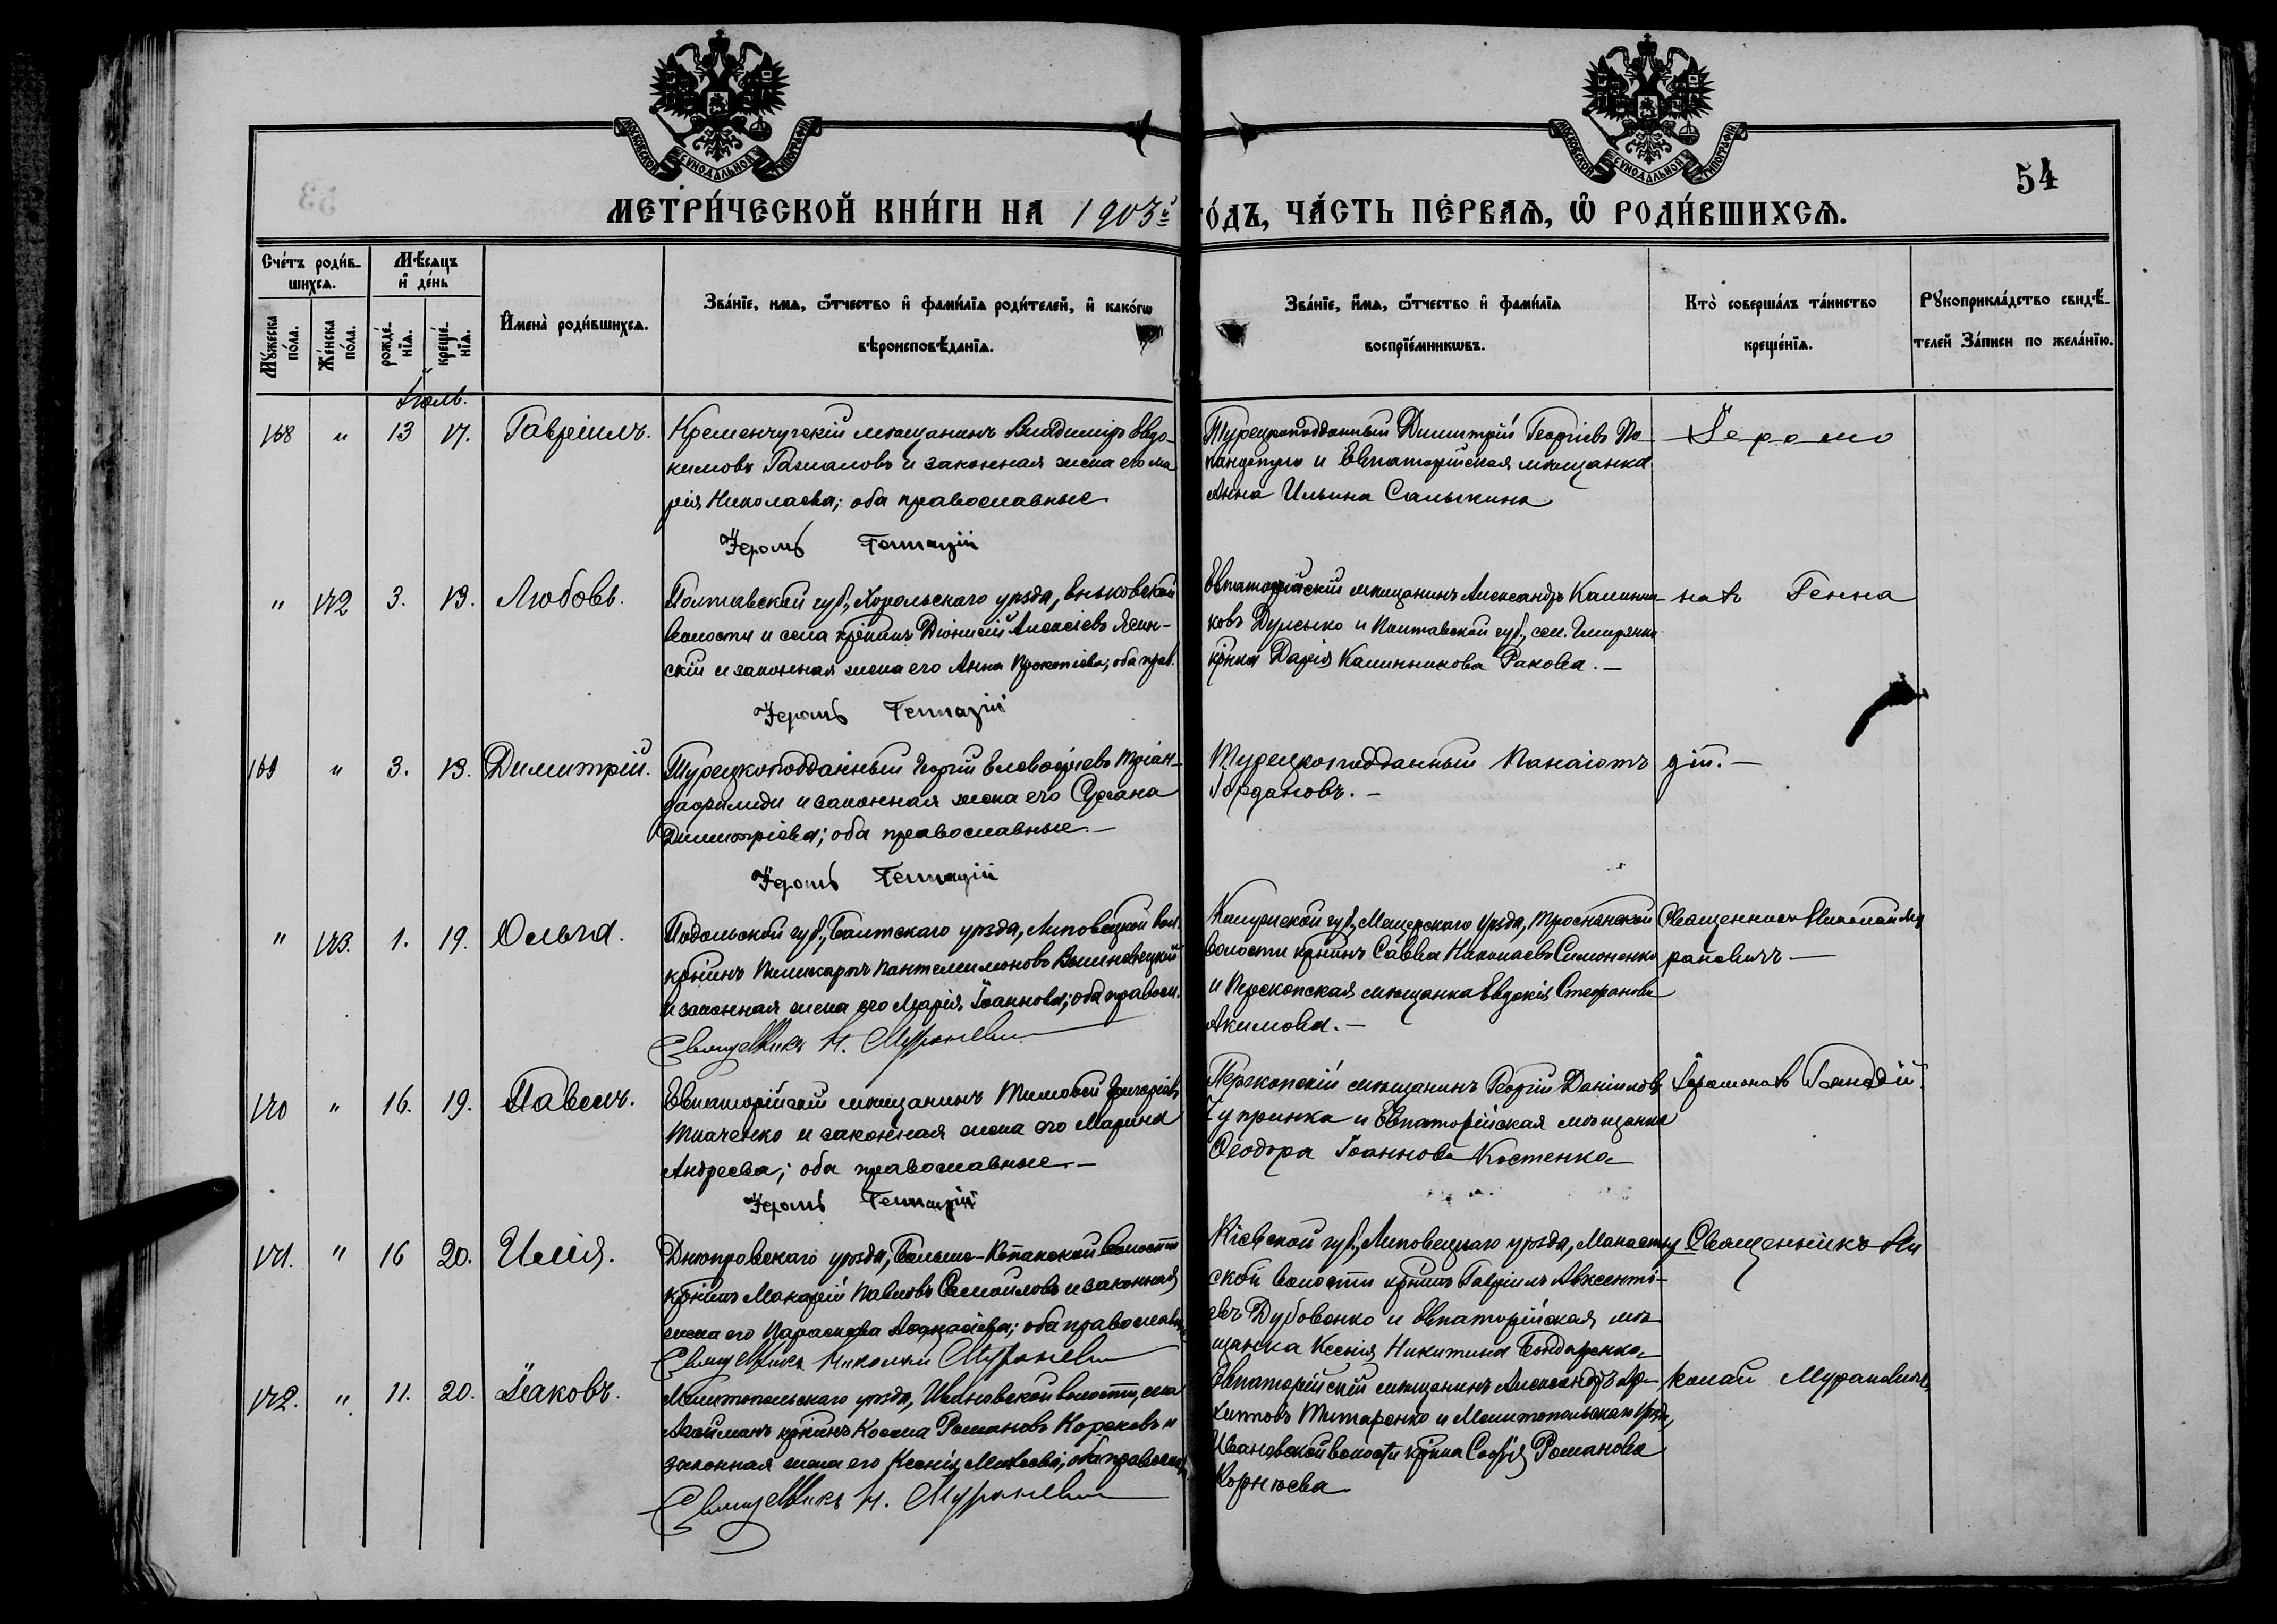 МОСКОВСКОЙ СѴНОДАЛЬНОЙ ТИПОГРАФІИ
МОСКОВСКОЙ СѴНОДАЛЬНОЙ ТИПОГРАФІИ
54
МЕТРИ́ЧЕСКОЙ КНИ́ГИ НА 1903й
ГО́ДЪ, ЧА́СТЬ ПЕ́РВАѦ, Ѡ РОДИ́ВШИХСѦ.
Сче́тъ роди́в-
шихсѧ.
Мѣ́сѧцъ
и̂ де́нь
Мꙋ́жеска по́ла.
Же́нска по́ла.
рожде́-
нїѧ.
креще́-
нїѧ.
И̂мена̀ роди́вшихсѧ.
Зва́нїе, имѧ, ѻ҆́тчество и̂ фами́лїѧ роди́телей, и̂ како́гѡ
вѣроисповѣ́данїѧ.
Зва́нїе, и́мѧ, ѻ҆́тчество и̂ фами́лїѧ
воспрїе́мникѡвъ.
Кто̀ соверша́лъ та́инство
креще́нїѧ.
Рꙋкоприкла́дство свидѣ́-
телей За́писи по жела́нїю.
Іюль.
168 " 13 17. Гавріилъ.
Кременчугскій мѣщанинъ Владиміръ Евдо-
кимовъ и законная жена его Ма
рія Николаева; оба православные
Іеромъ Геннадій
Турецкоподданный Димитрій Георгіевъ По-
и Евпаторійская мѣщанка
Анна Ильина Салыкина
Іеромо
" 142 3. 13. Любовь.
Полтавской губ., Хорольскаго уѣзда,
волости и села кр̃нинъ Діонисій Алексіевъ Ясин-
скій и законная жена его Анна Прокопіева; оба прав.
Іеромъ Геннадій
Евпаторійскій мѣщанинъ Александръ Калинни-
ковъ и Полтавской губ., сел.
кр̃нка Дарія Калинникова Ракова. —
нахъ Генна
169 " 3. 13. Димитрій.
Турецкоподданный Георгій
и законная жена его Сусана
Димитріева; оба православные. —
Іеромъ Геннадій
Турецкоподданный Панаіотъ
Іордановъ. —
дій. —
" 143. 1. 19. Ольга.
Подольской губ., Балтскаго уѣзда, вол.
кр̃нинъ Поликарпъ Пантелимоновъ
и законная жена его Марія Іоаннова; оба правосл.
Священникъ Н. Мураневич
Калужской губ., уѣзда,
волости кр̃нинъ Савва Николаевъ Симоненко
и Перекопская мѣщанка Евдокія Стефанова
Акимова. —
Священникъ Николай Му
раневичъ —
170 " 16. 19. Павелъ.
Евпаторійскій мѣщанинъ Тимофей Григоріевъ
Ткаченко и законная жена его Марина
Андреева; оба православные. —
Іеромъ Геннадій
Перекопскій мѣщанинъ Георгій Даніиловъ
Чупринка и Евпаторійская мѣщанка
Ѳеодора Іоаннова Костенко
Іеромонахъ Геннадій.
171. " 16 20. Илія.
Днѣпровскаго уѣзда, Больше-Копанской волости
кр̃нинъ Макарій Павловъ Самойловъ и законная
жена его Параскева Аѳанасіева; оба православн.
Священникъ Николай Мураневич
Кіевской губ., Липовецкаго уѣзда, Монасты
ской волости кр̃нинъ Гавріилъ Авксенті-
евъ Дубовенко и Евпаторійская мѣ
щанка Ксенія Никитина Бондаренко
Священникъ Ни
172. " 11. 20. Іаковъ.
Мелитопольскаго уѣзда, Ивановской волости, села
кр̃нинъ Косма Романовъ и
законная жена его Ксенія; оба правосл.
Священникъ Н. Мураневич
Евпаторійскій мѣщанинъ Александръ Ар-
хиповъ Титаренко и Мелитопольскаго уѣзда,
Ивановской волости кр̃нка Софія Романова
Корнюева
колай Мураневичъ